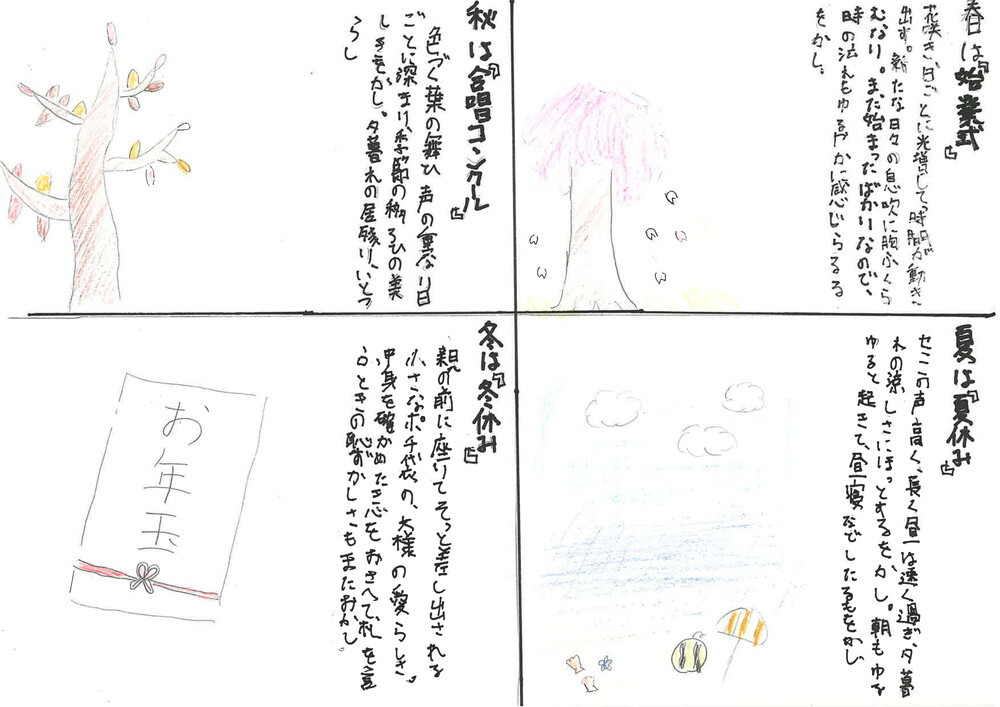 春は『始業式』
花咲き、日ごとに光増して、時間が動き
出す。新たな日々の息吹に胸ふくら
むなり。まだ始まったばかりなので、
時の流れもゆるやかに感じらるる
をかし。
夏は『夏休み』
セミの声高く、長く昼は速く過ぎ、夕暮
れの涼しさにほっとするをかし。朝もゆる
ゆると起きて、昼寝などしたるもをかし
秋は『合唱コンクール』
色づく葉の舞ひ 声の重なり日
ごとに深まり、季節の移ろひの美
しきをかし。夕暮れの居残り、いとつ
らし
冬は『冬休み』
親の前に座りてそっと差し出される
小さなポチ袋の、大様の愛らしさ。
中身を確かめたき心をおさへて、礼を言
うときの恥ずかしさもまたおかし。
お年玉